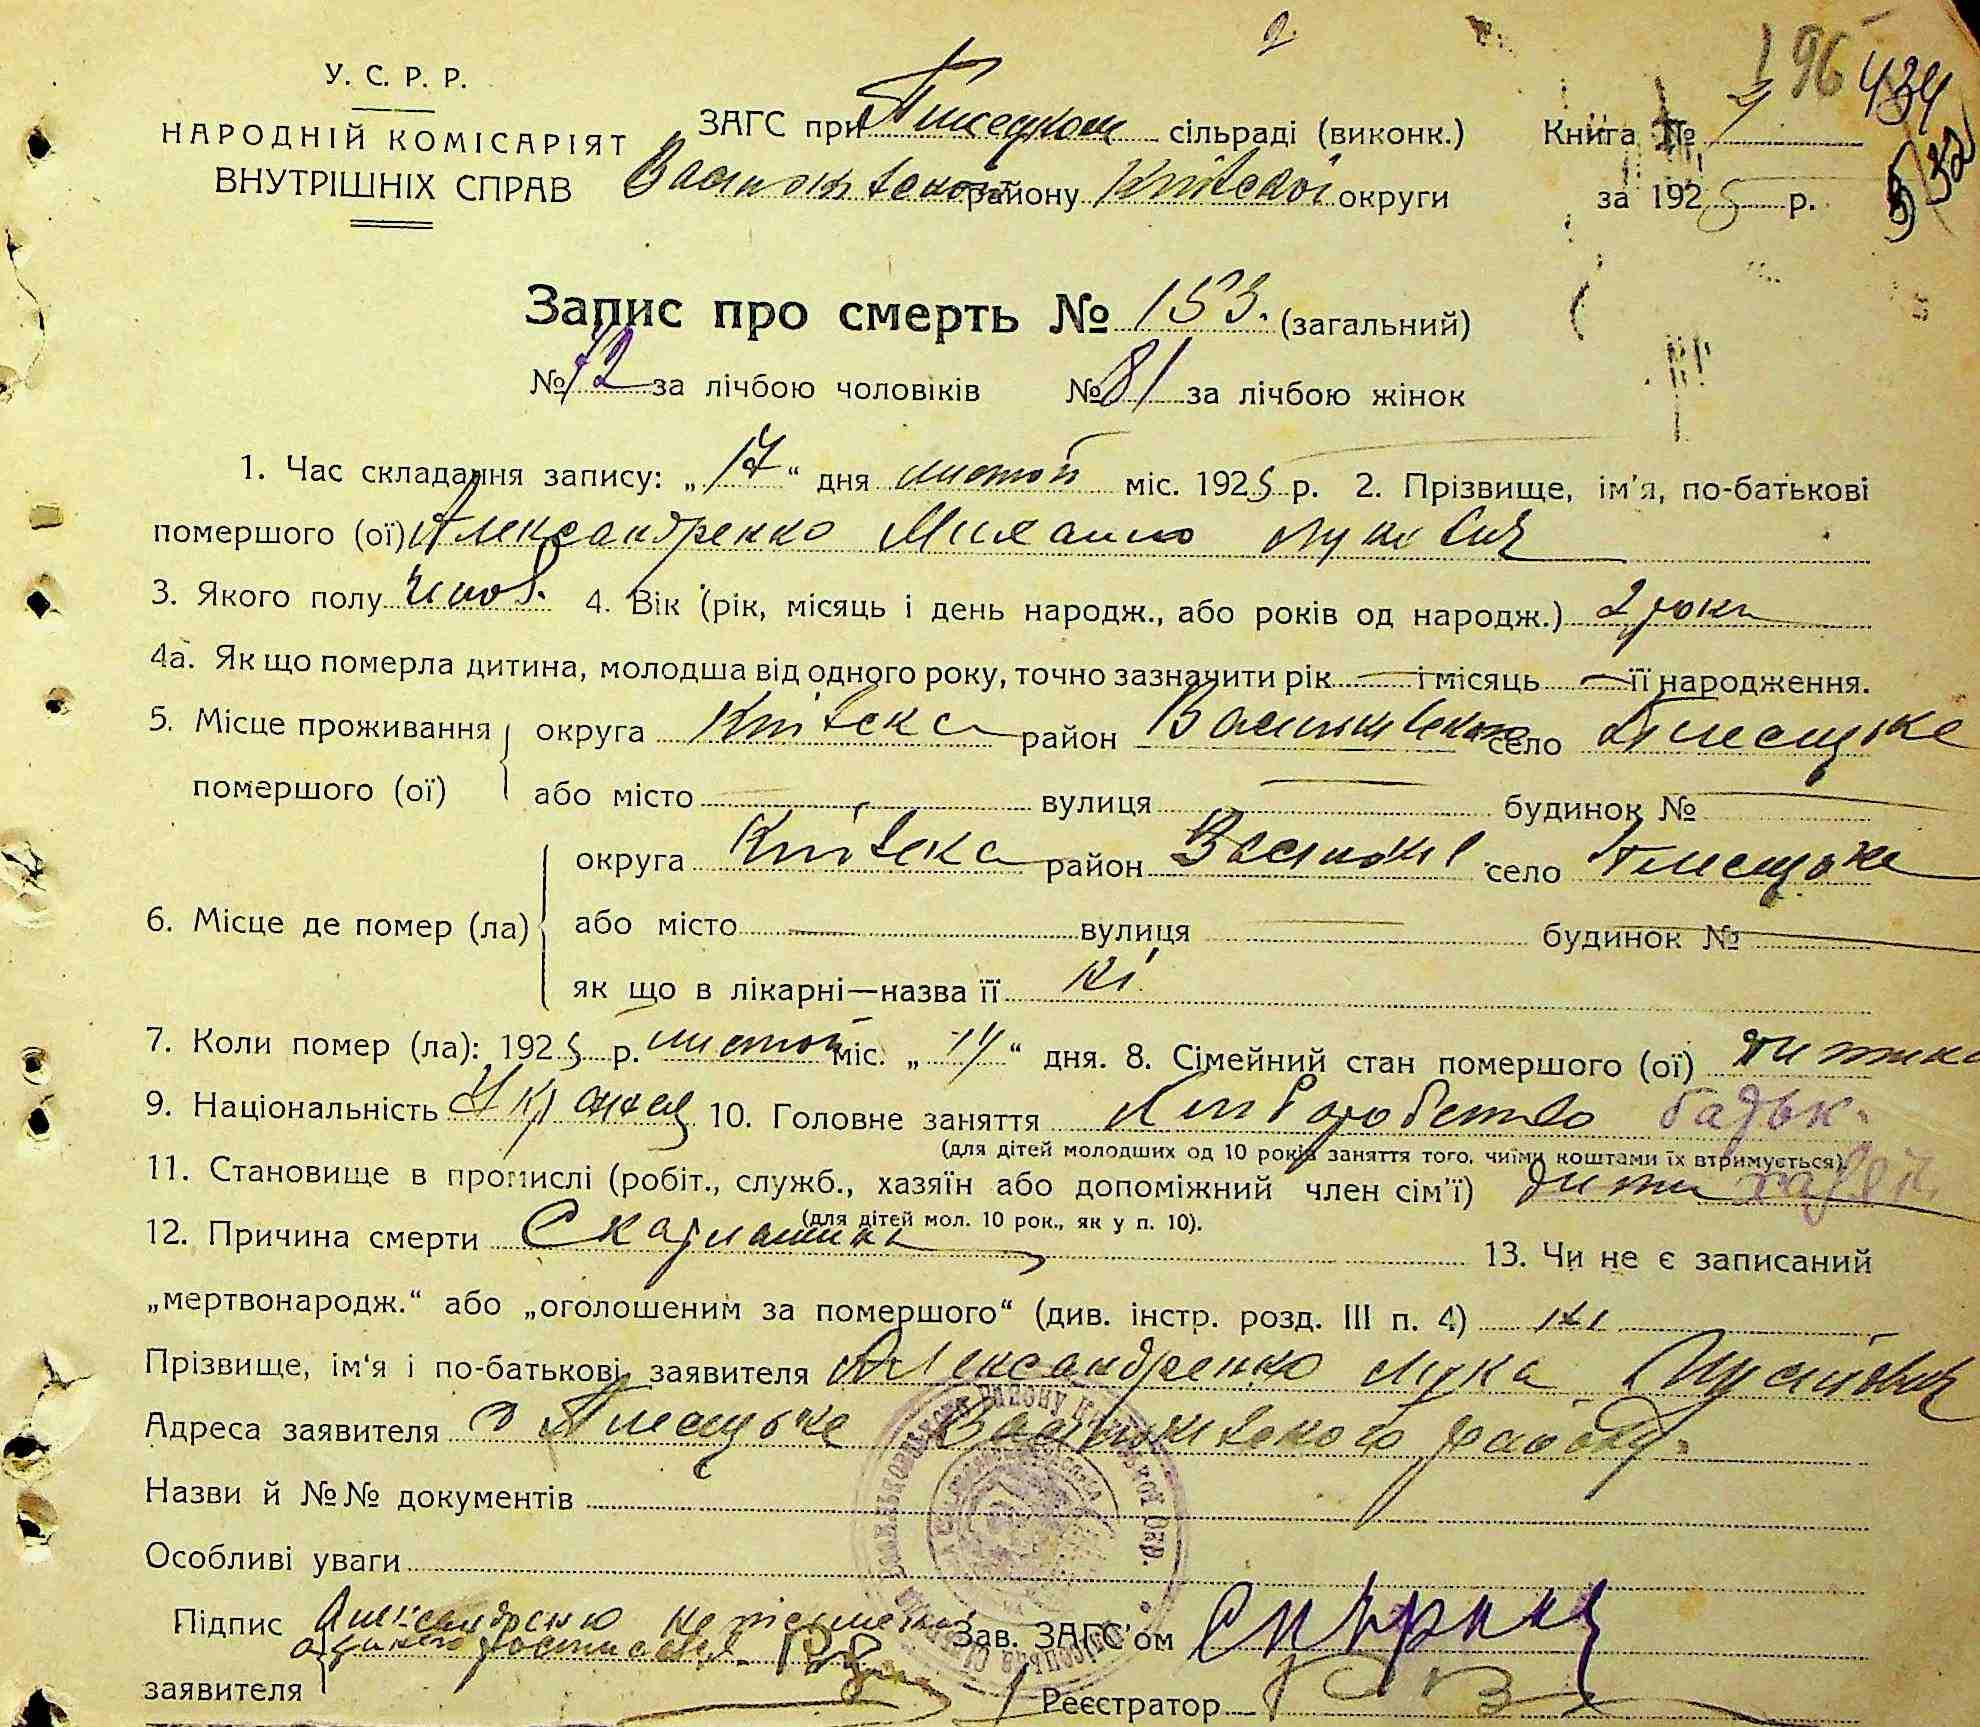 196 434
У. С. Р. Р.
НАРОДНІЙ КОМІСАРІЯТ
ВНУТРІШНІХ СПРАВ
ЗАГС при Плесецком сільраді (виконк.) Книга № 7
Васильківской району Київскої округи за 1925 р.
532
Запис про смерть № 153. (загальний)
№ 72 за лічбою чоловіків № 81 за лічбою жінок
1. Час складання запису: „17“ дня листоп міс. 1925 р. 2. Прізвище, ім'я, по-батькові
помершого (ої) Александренко Михаило Лукович
3. Якого полу чолов. 4. Вік (рік, місяць і день народж., або років од народж.) 2 роки
4а. Як що померла дитина, молодша від одного року, точно зазначити рік — і місяць — її народження.
5. Місце проживання округа Київска район Васильківской село Плесецьке
помершого (ої) або місто вулиця — будинок №
округа Київска район Васильків село Плесецьке
6. Місце де помер (ла) або місто — вулиця — будинок № —
як що в лікарні—назва її ні
7. Коли помер (ла): 1925 р. листоп міс. „14“ дня. 8. Сімейний стан помершого (ої) дитина
9. Національність Українец 10. Головне заняття Хліборобство батьк.
(для дітей молодших од 10 років заняття того, чиїми коштами їх втримується).
11. Становище в промислі (робіт., служб., хазяїн або допоміжний член сім'ї) дити хазяїн
(для дітей мол. 10 рок., як у п. 10).
12. Причина смерти Скарлатина 13. Чи не є записаний
„мертвонародж.“ або „оголошеним за помершого“ (див. інстр. розд. III п. 4) ні
Прізвище, ім'я і по-батькові заявителя Александренко Лука
Адреса заявителя с Плесецьке Васильківского району.
Назви й №№ документів
Особливі уваги
Підпис Александренко неписьмений
росписався Зав. ЗАГС'ом
заявителя Реєстратор